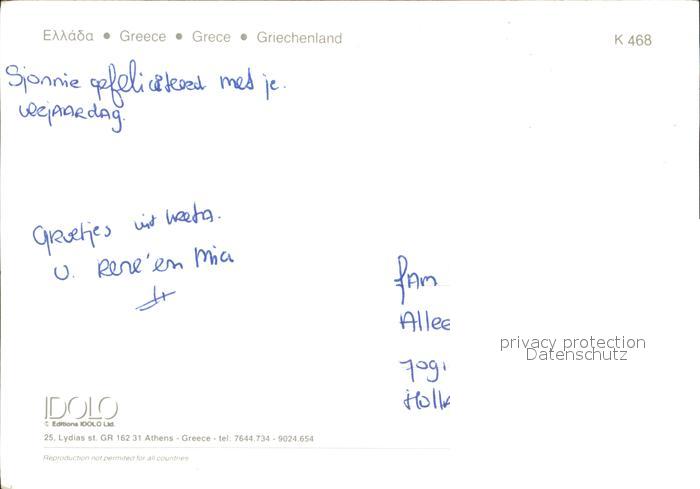 Ελλάδα • Greece • Grece • Griechenland
K 468
Sjonnie gefeliciteerd met je.
verjaardag.
Groetjes uit kreta.
v. René en Mia
fam
Allee
7091
Holla
privacy protection
Datenschutz
IDOLO
© Editions IDOLO Ltd.
25, Lydias st. GR 162 31 Athens - Greece - tel: 7644.734 - 9024.654
Reproduction not permited for all countries